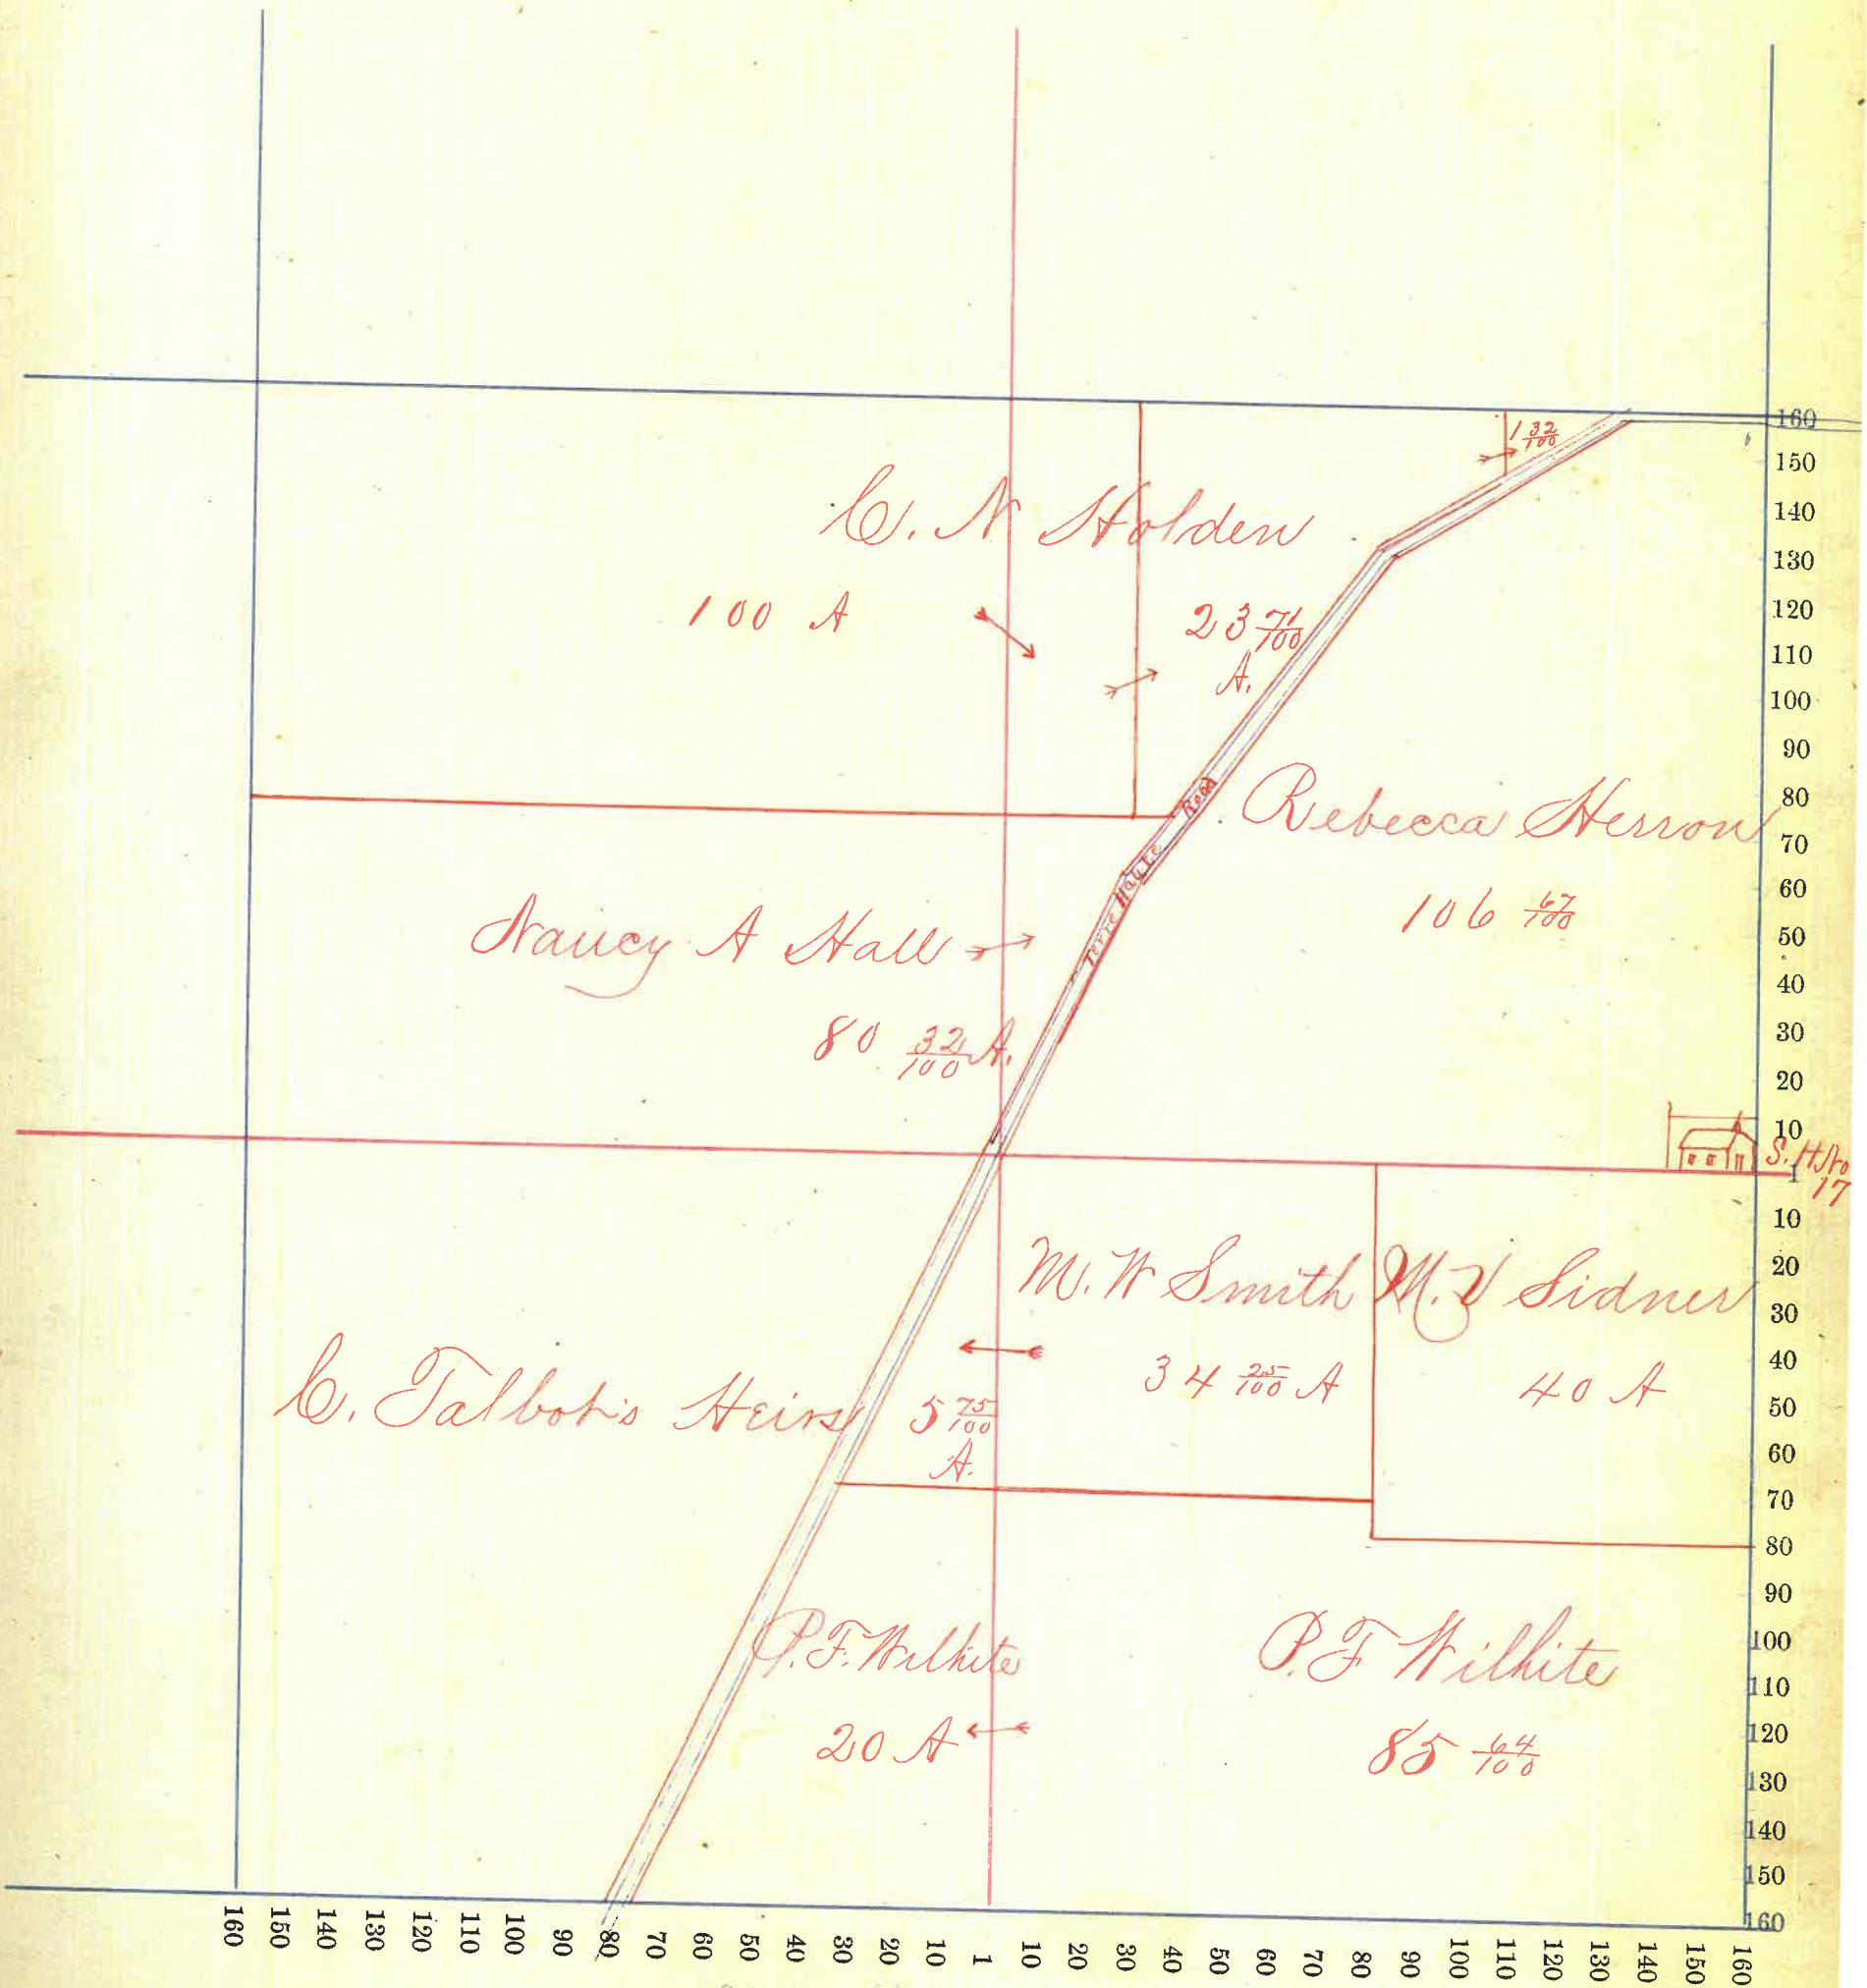 1 32/100
C. N Holden
100 A
23 71/100
A.
Terre Haute Road
Rebecca Herron
106 67/100
Nancy A Hall
80 32/100 A.
S. H No
17
M. W Smith
34 25/100 A
M. V Sidner
40 A
C. Talbot's Heirs
5 75/100
A.
P. F. Wilhite
20 A
P. F Wilhite
85 64/100
160
150
140
130
120
110
100
90
80
70
60
50
40
30
20
10
1
10
20
30
40
50
60
70
80
90
100
110
120
130
140
150
160
160 150 140 130 120 110 100 90 80 70 60 50 40 30 20 10 1 10 20 30 40 50 60 70 80 90 100 110 120 130 140 150 160